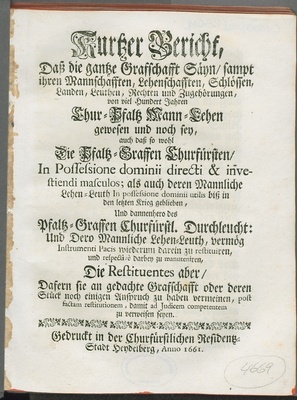 Kurtzer Bericht,
Daß die gantze Graffschafft Säyn/ sampt
ihren Mannschafften, Lehenschafften, Schlössen,
Landen, Leuthen, Rechten und Zugehörungen,
von viel Hundert Jahren
Chur-Pfaltz Mann-Lehen
gewesen und noch sey,
auch daß so wohl
Die Pfaltz-Graffen Churfürsten/
In Possessione dominii directi & inve-
stiendi masculos; als auch deren Mannliche
Lehen-Leuth In possessione dominii utilis biß in
den letzten Krieg geblieben,
Und dannenhero des
Pfaltz-Graffen Churfürstl. Durchleucht:
Und Dero Mannliche Lehen-Leuth, vermög
Instrumenti Pacis wiederum darein zu restituiren,
und respectivè darbey zu manuteniren,
Die Restituentes aber/
Dafern sie an gedachte Graffschafft oder deren
Stück noch einigen Anspruch zu haben vermeinen, post
factam restitutionem, damit ad Judicem competentem
zu verweisen seyen.
Gedruckt in der Churfürstlichen Residentz-
Stadt Heydelberg, Anno 1661.
4669